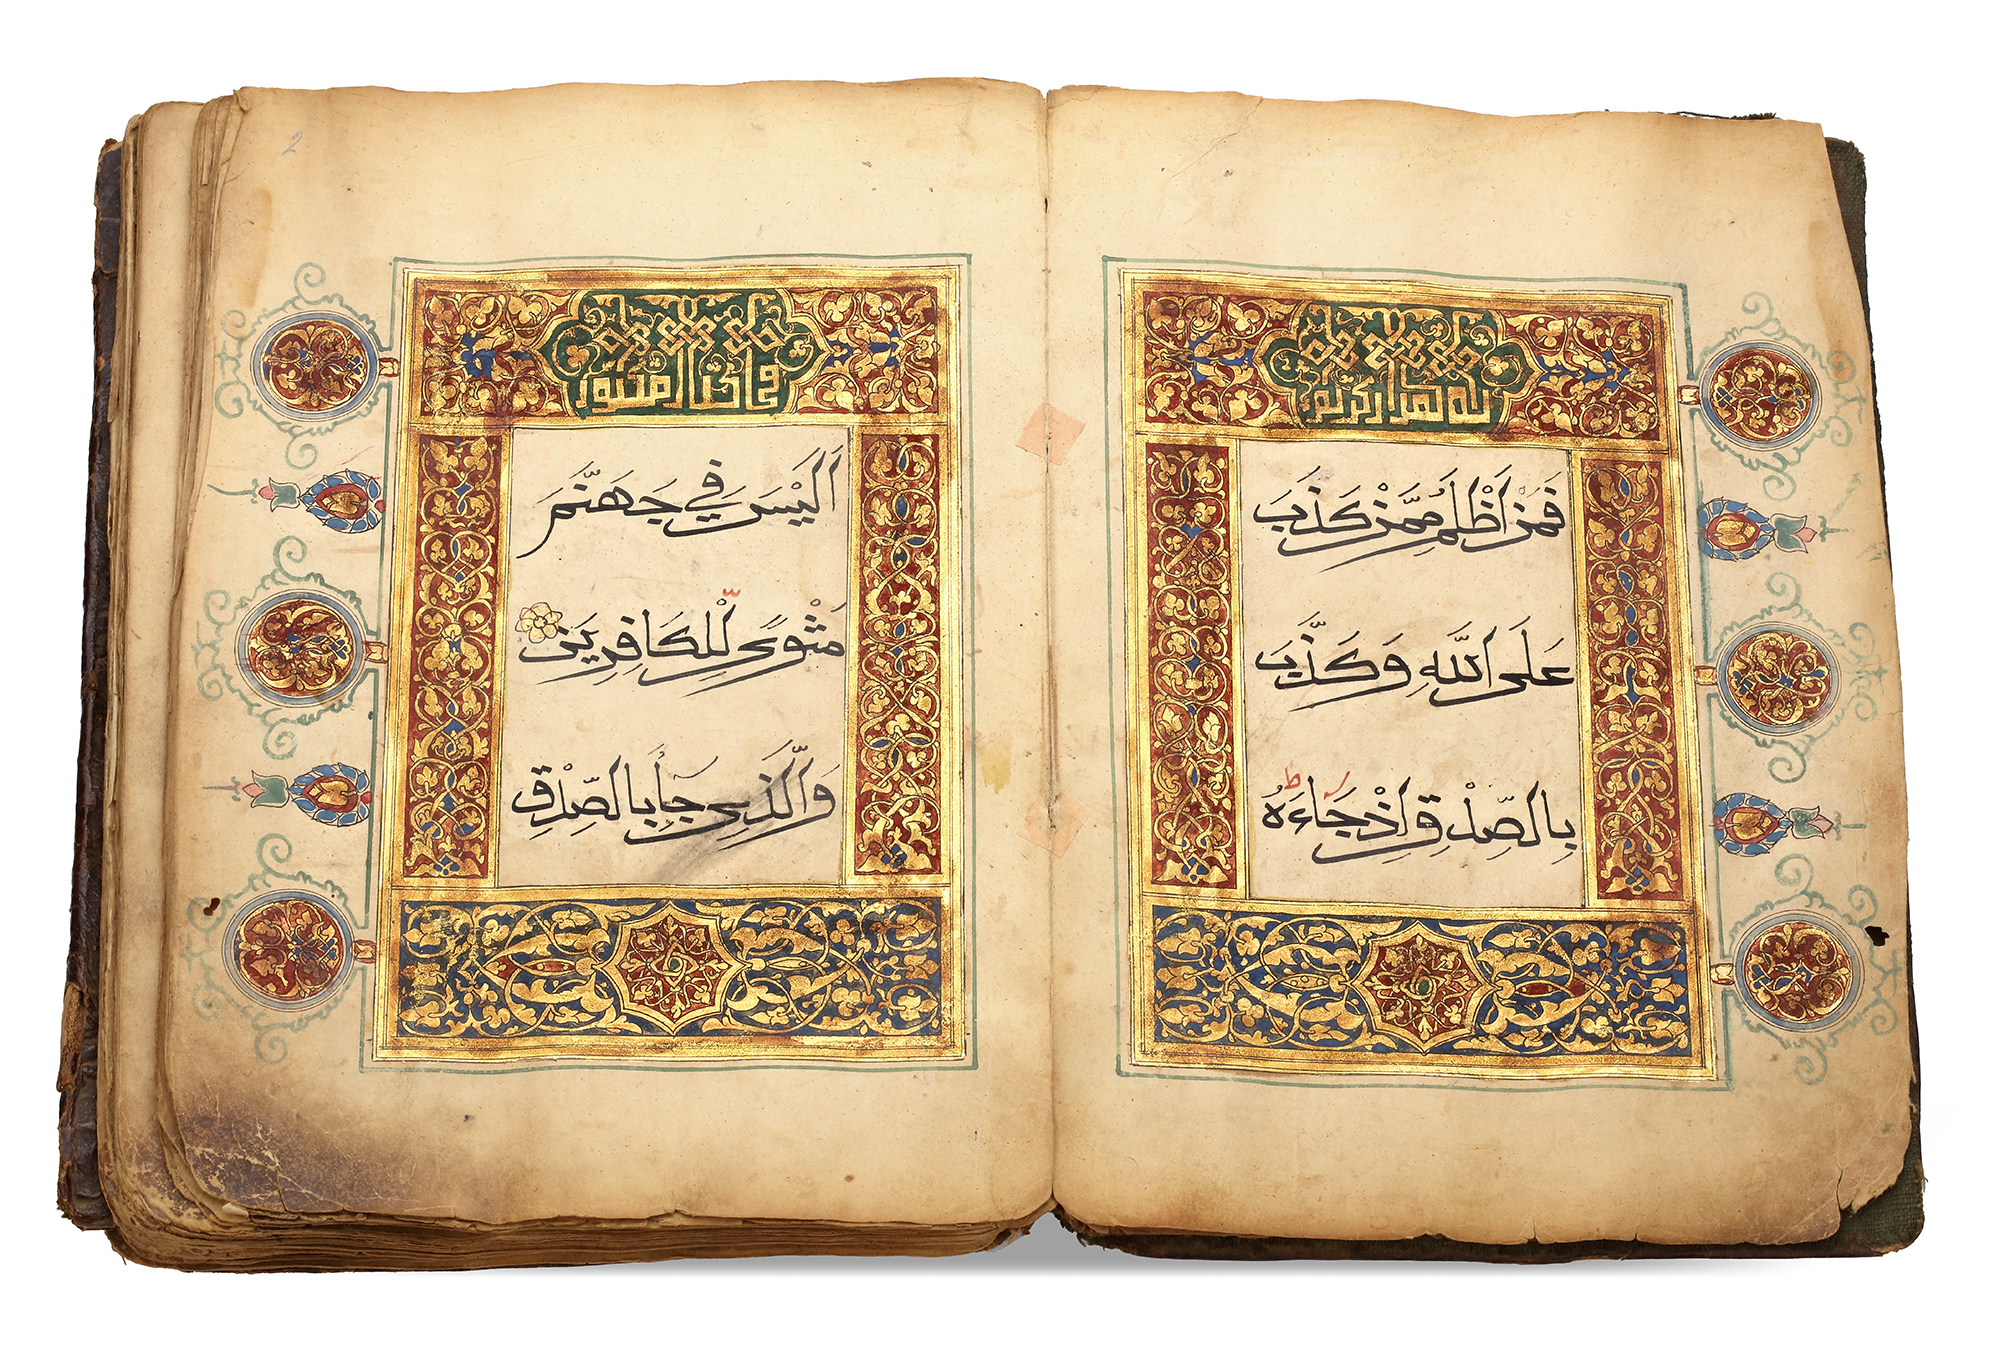 فَمَنْ اَظْلَمُ مِمَّنْ كَذَبَ
عَلَى اللّٰهِ وَكَذَّبَ
بِالصِّدْقِ اِذْ جَاءَهُ
اَلَيْسَ فِي جَهَنَّمَ
مَثْوًى لِلْكَافِرِينَ
وَالَّذِي جَاءَ بِالصِّدْقِ
2